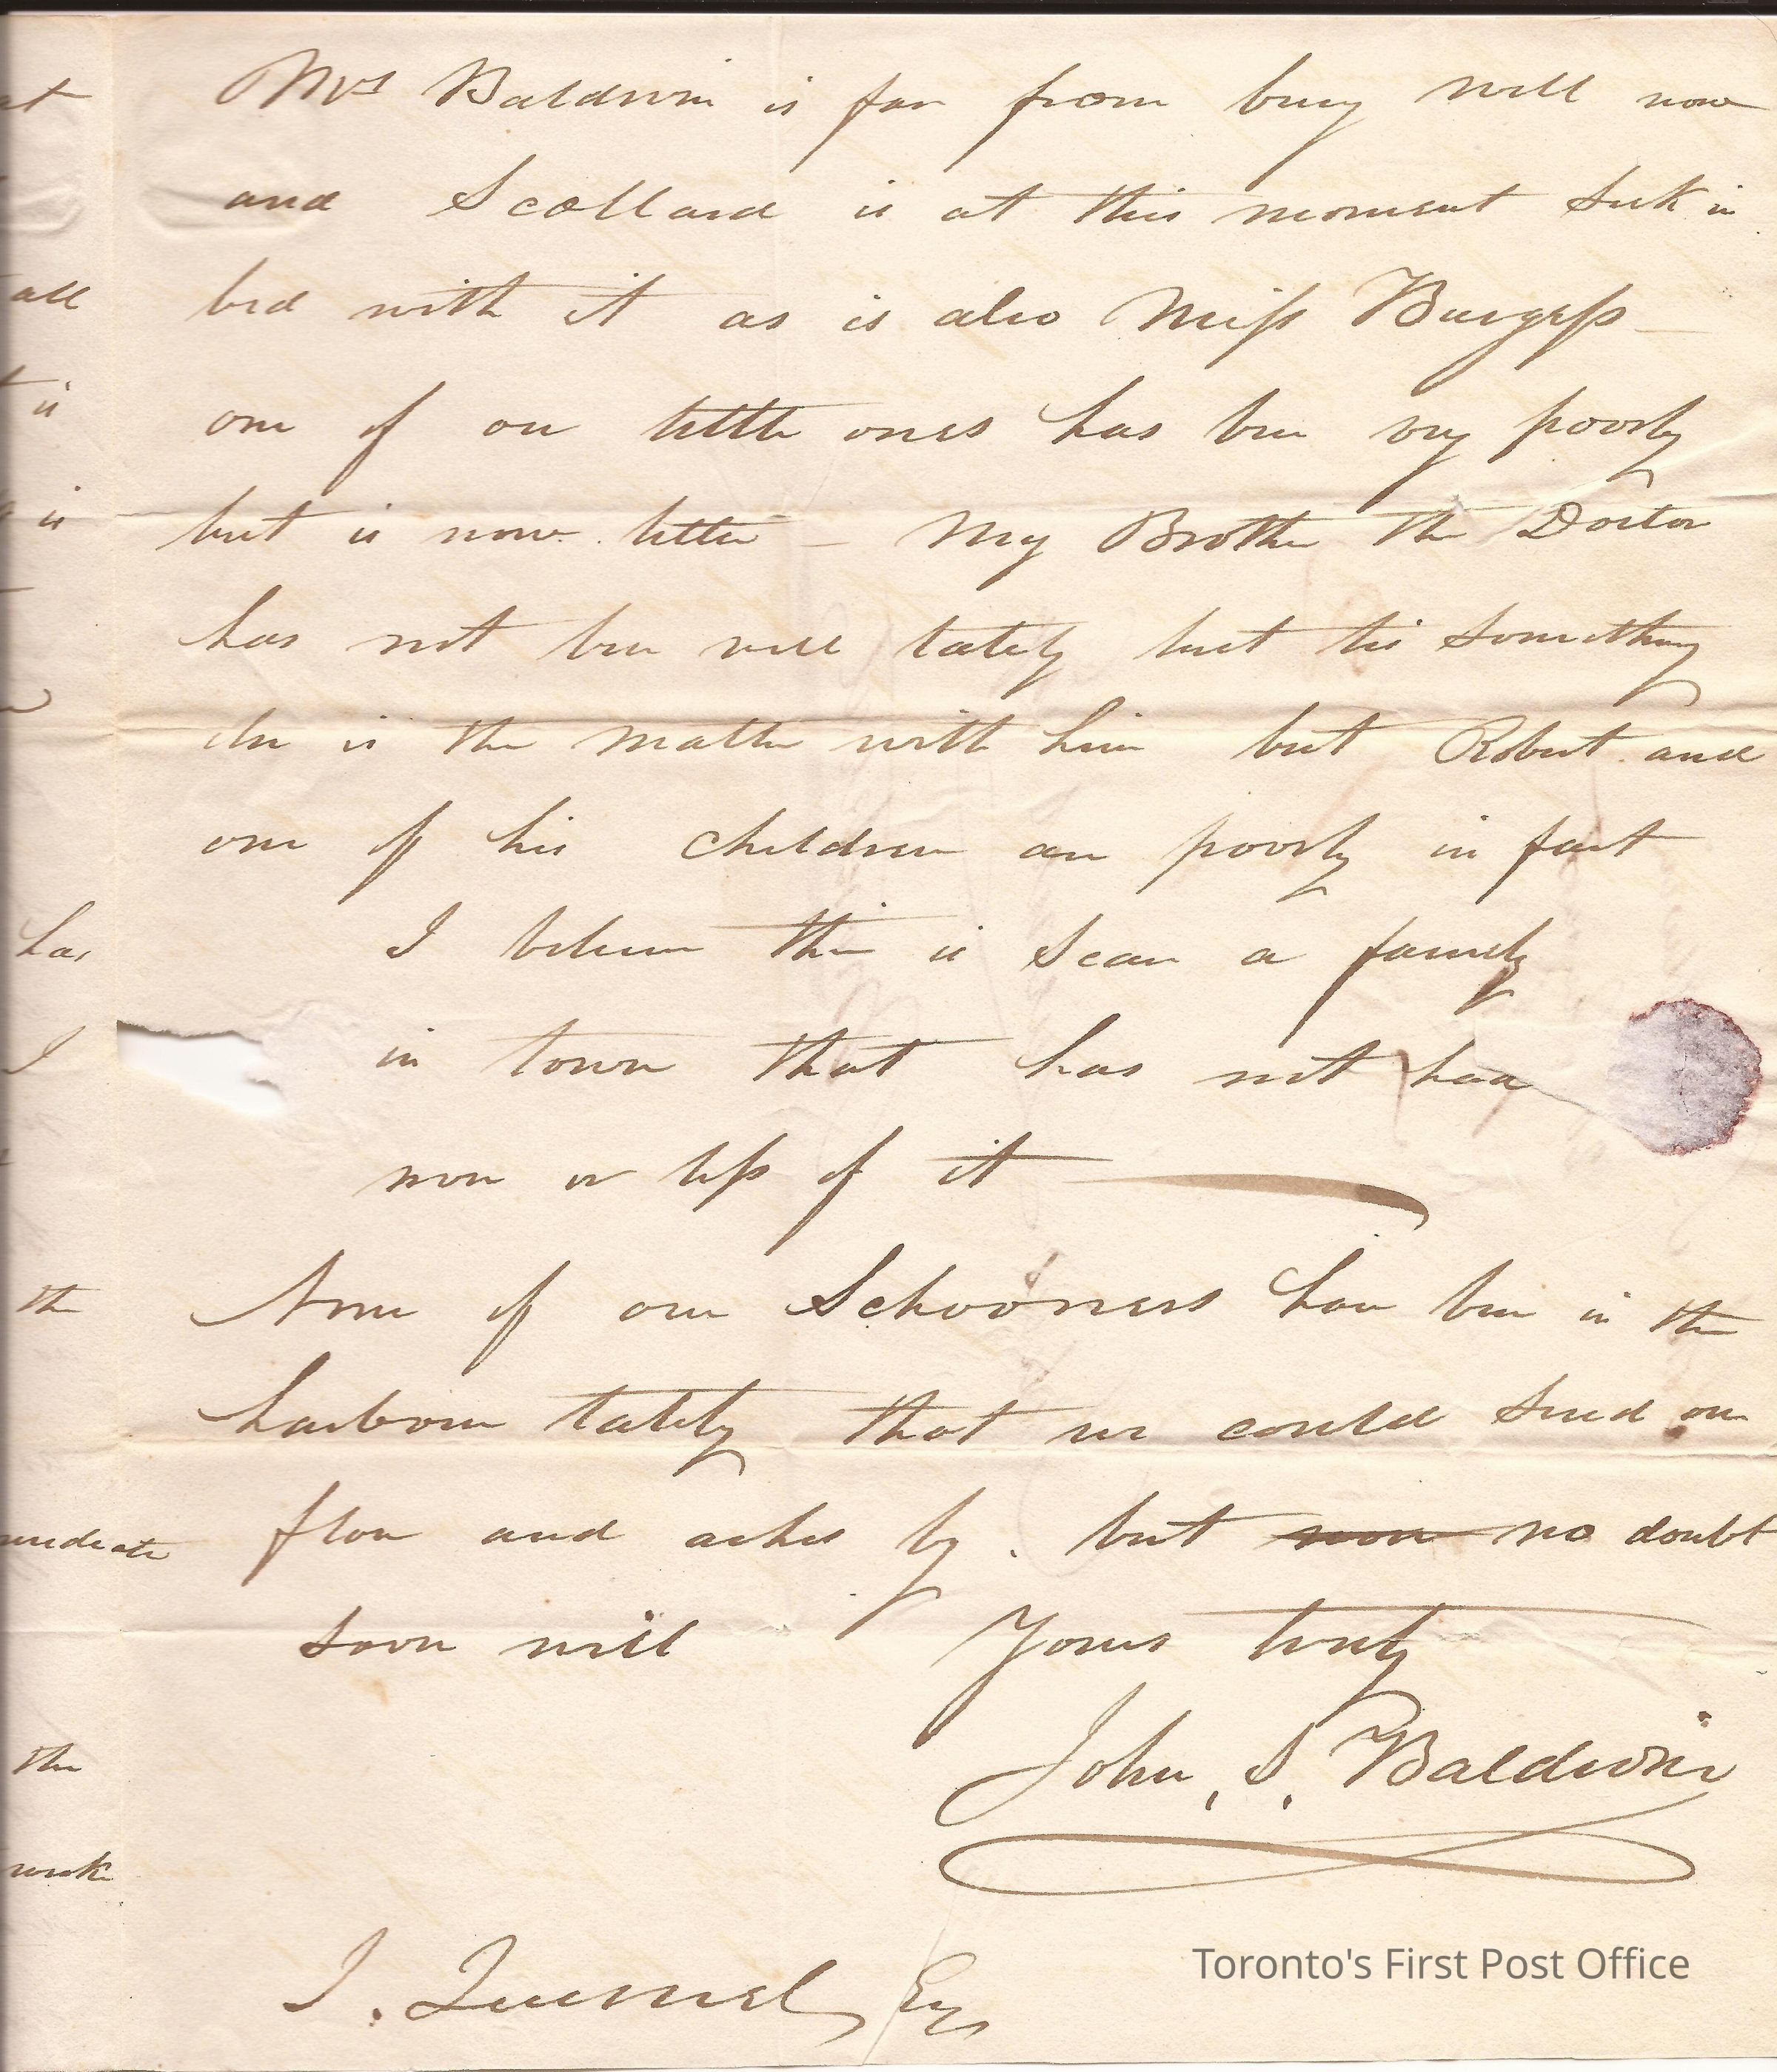 Mrs Baldwin is far from being well now
and Scollard is at this moment sick in
bed with it as is also Miss Burgess —
one of our little ones has been very poorly
but is now better — My Brother the Doctor
has not been well lately but tis something
else is the matter with him but Robert and
one of his children are poorly in fact
I believe there is scarce a family
in town that has not had
more or less of it —
None of our Schooners have been in the
harbour lately that we could send our
flour and ashes by. but no doubt
soon will
Yours truly
John. S. Baldwin
J. Quesnel Esq
all
is
is
has
I
the
the
week
Toronto's First Post Office